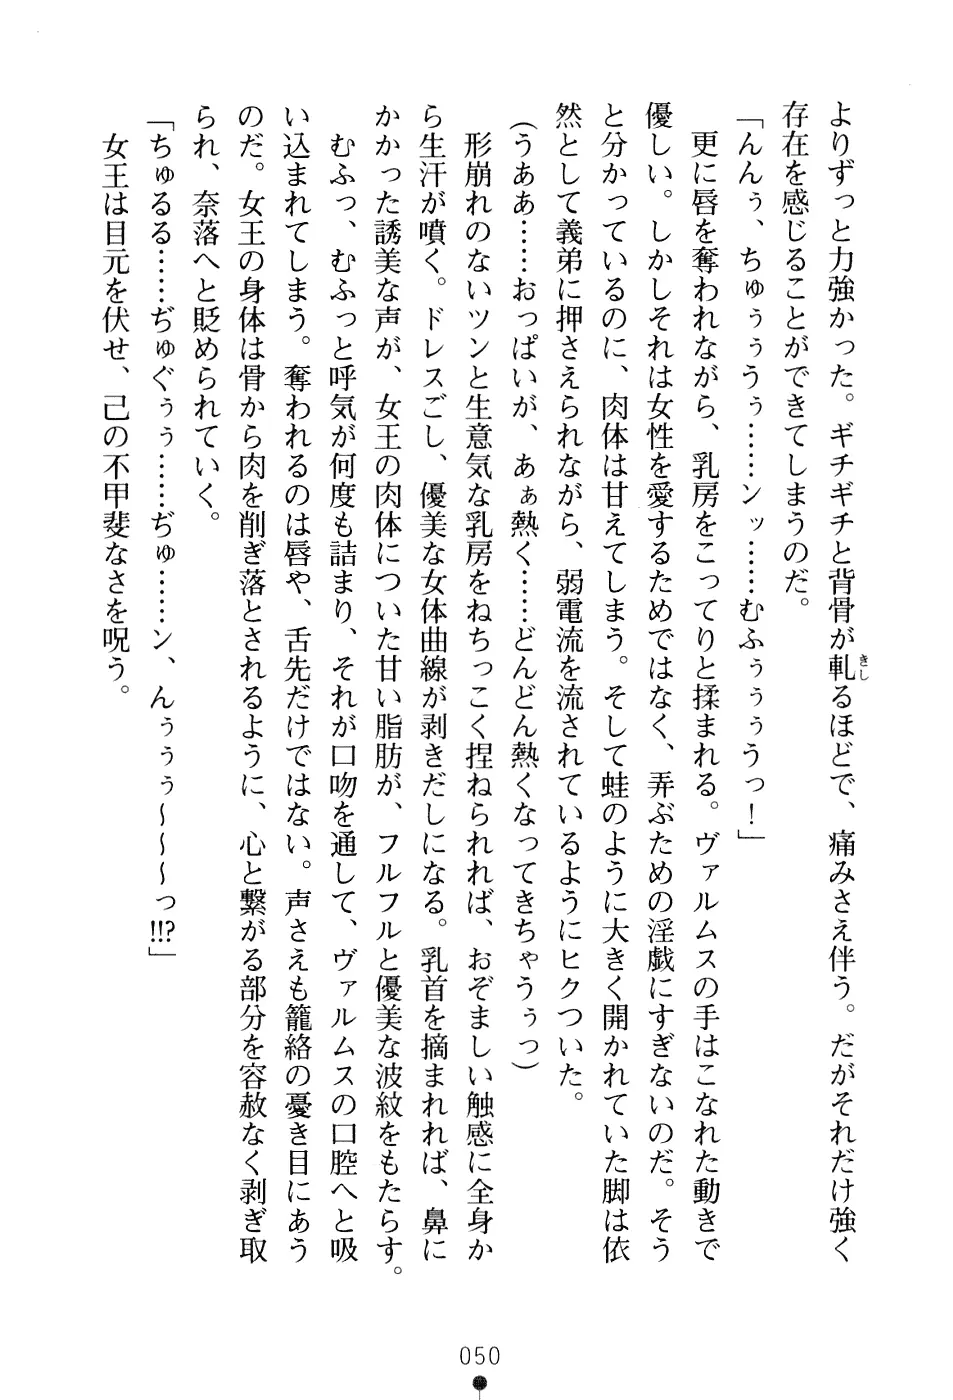 よりずっと力強かった。ギチギチと背骨が軋るほどで、痛みさえ伴う。だがそれだけ強く
きし
存在を感じることができてしまうのだ。
「んんぅ、ちゅぅぅうぅ……ンッ……むふぅぅぅうっ！」
更に唇を奪われながら、乳房をこってりと揉まれる。ヴァルムスの手はこなれた動きで
優しい。しかしそれは女性を愛するためではなく、弄ぶための淫戯にすぎないのだ。そう
と分かっているのに、肉体は甘えてしまう。そして蛙のように大きく開かれていた脚は依
然として義弟に押さえられながら、弱電流を流されているようにヒクついた。
（うああ……おっぱいが、あぁ熱く……どんどん熱くなってきちゃうぅっ）
形崩れのないツンと生意気な乳房をねちっこく捏ねられれば、おぞましい触感に全身か
ら生汗が噴く。ドレスごし、優美な女体曲線が剥きだしになる。乳首を摘まれれば、鼻に
かかった誘美な声が、女王の肉体についた甘い脂肪が、フルフルと優美な波紋をもたらす。
むふっ、むふっと呼気が何度も詰まり、それが口吻を通して、ヴァルムスの口腔へと吸
い込まれてしまう。奪われるのは唇や、舌先だけではない。声さえも籠絡の憂き目にあう
のだ。女王の身体は骨から肉を削ぎ落とされるように、心と繋がる部分を容赦なく剥ぎ取
られ、奈落へと貶められていく。
「ちゅるる……ぢゅぐぅぅ……ぢゅ……ン、んぅぅぅ～～～っ!!?」
女王は目元を伏せ、己の不甲斐なさを呪う。
050